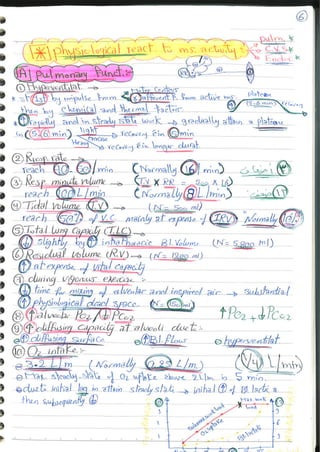 6
[*] physiological react. to ms. activity :-
pulm.
C.V.S.
Endoc.
[A] Pulmonary Funct. :-
① Hyperventilat. →
Motor Centers
* st by impulse from & afferent from active ms
then by chemical and thermal factors.
rapidly and in steady state work → gradually attain a plateau
in (5-6 min)
light exercise → recovery in min
Heavy → recovery in longer durat.
② Resp. rate →
reach 40-50/min (Normally 16/min)
③ Resp. minute volume → TV x RR = 500 x 16
reach 100 L/min (Normally 8 L/min)
④ Tidal volume (T.V) → (N= 500 ml)
reach 50% of V.C mainly at expense of (IRV) Normally 10%
⑤ Total lung capacity (T.L.C) →
↓ slightly by ↑ intrathoracic Bl. Volume (N= 5800 ml)
⑥ Residual volume (R.V) → (N= 1200 ml)
↑ at expense of vital capacity
⑦ during vigorous exercise :-
↓ time for mixing of alveolar and inspired air → substantial
↑ physiological dead space (N= 150 ml)
⑧ ↑ alveolar PO2 / ↓ PCO2 ↑PO2 + ↓PCO2
⑨ ↑ diffusing capacity at alveoli due to :-
↑ diffusing surface ↑ Bl. Flow hyperventilat
⑩ O2 intake :-
3-4 L/m (Normally 0.25 L/m) 1/4 L/min
steady state of O2 uptake above 2 L/m in 5 min.
due to initial lag in attain steady state → initial ↑ of Bl. lactic a
then subsequently ↓
Max work load
O2 uptake
Bl. lactate